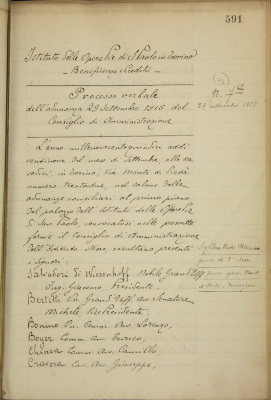 591
Istituto delle Opere Pie di S. Paolo in Torino
Beneficenza e Credito
Processo verbale
dell'adunanza 29 Settembre 1915 del
Consiglio di Amministrazione
29 Settembre 1915
L'anno millenovecentoquindici addì
ventinove del mese di Settembre alle ore
in Torino, via Monte di Pietà
numero trentadue, nel salone delle
adunanze consigliari al primo piano
del palazzo dell'Istituto delle Opere Pie
di San Paolo, convocatosi nelle prescritte
forme il Consiglio di Amministrazione
dell'Istituto stesso, risultano presenti
i Signori:
Salvadori di Wiesenhoff Nobile Grand'Uff.
Ing. Giacomo, Presidente.
Bertetti Grand'Uff. Avv. Senatore
Michele, Vice Presidente.
Bonino Comm. Avv. Lorenzo,
Boyer Comm. Avv. Enrico,
Chiesa Comm. Avv. Camillo,
Cravero Cav. Avv. Giuseppe,